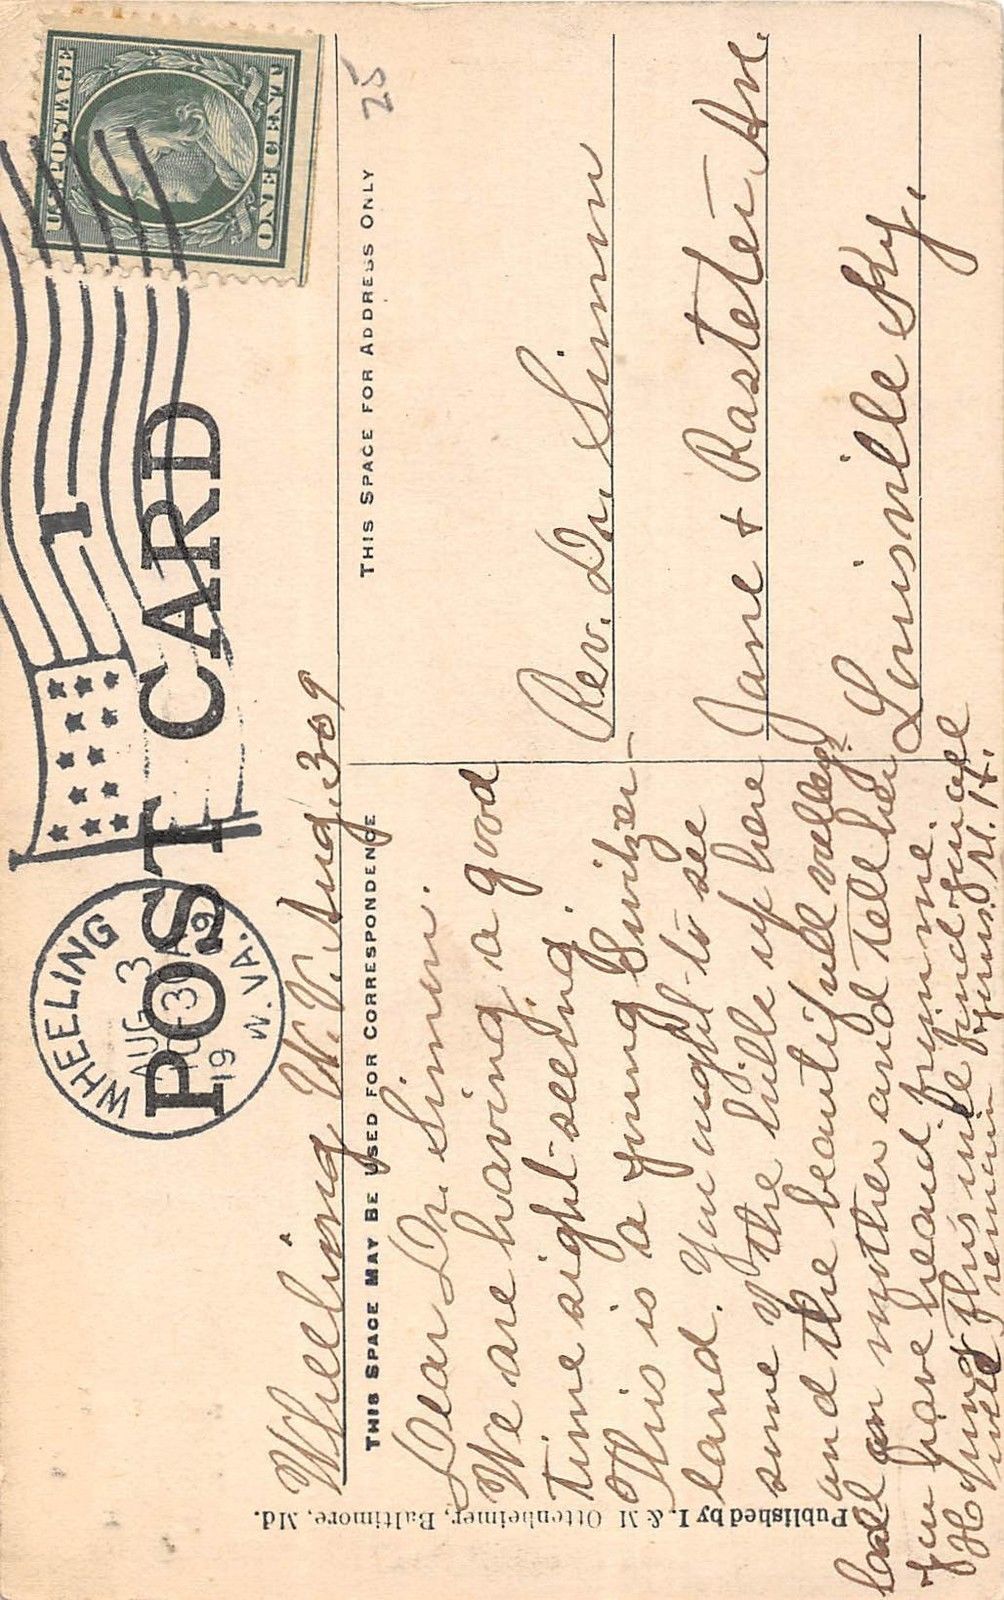 POST CARD
WHEELING
AUG 3
10-30A
1909
W. VA.
1
U.S. POSTAGE
ONE CENT
25
Wheeling W. V. Aug. 3 09
THIS SPACE MAY BE USED FOR CORRESPONDENCE
THIS SPACE FOR ADDRESS ONLY
Dear Dr. Simon.
We are having a good
time sight-seeing.
This is a young Switzer-
land. You ought to see
some of the hills up here
and the beautifull valleys.
Call on mother and tell her
you have heard from me.
Hoping this will find you all
well I remain yours. M. H.
Rev. Dr. Simon
Jane & Rasteter Av.
Louisville Ky.
Published by I. & M. Ottenheimer, Baltimore, Md.